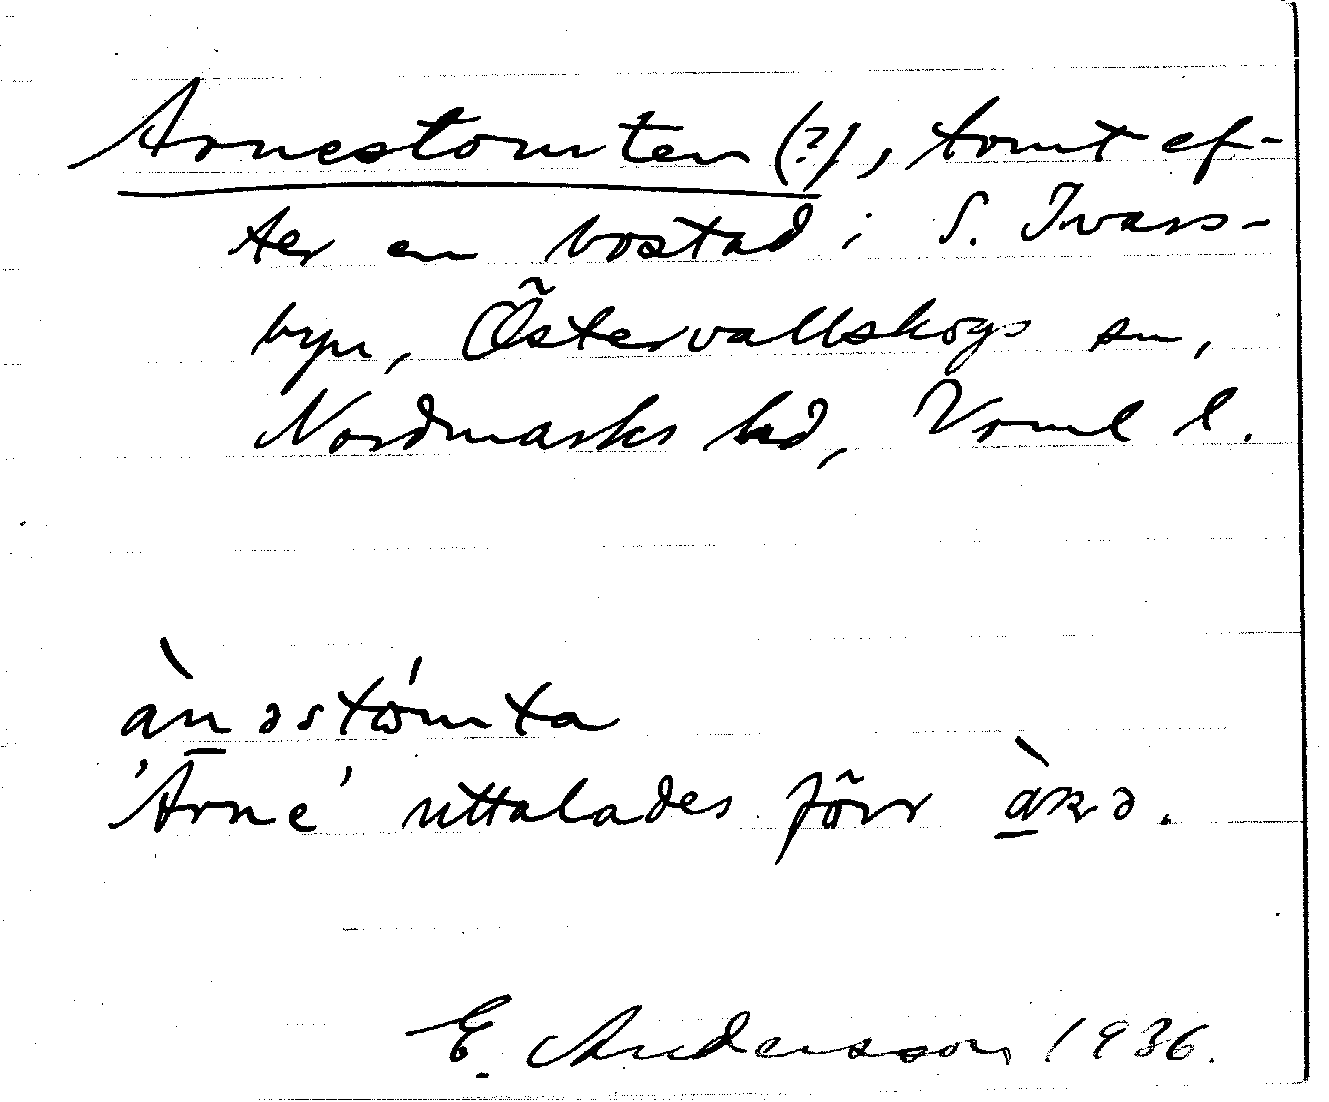 Arnestomten (?), tomt ef-
ter en bostad i S. Ivars-
byn, Östervallskogs sn,
Nordmarks hd, Vrml l.
à̱nəstómta
'Arne' uttalades förr à̱ɳə.
E. Andersson 1936.